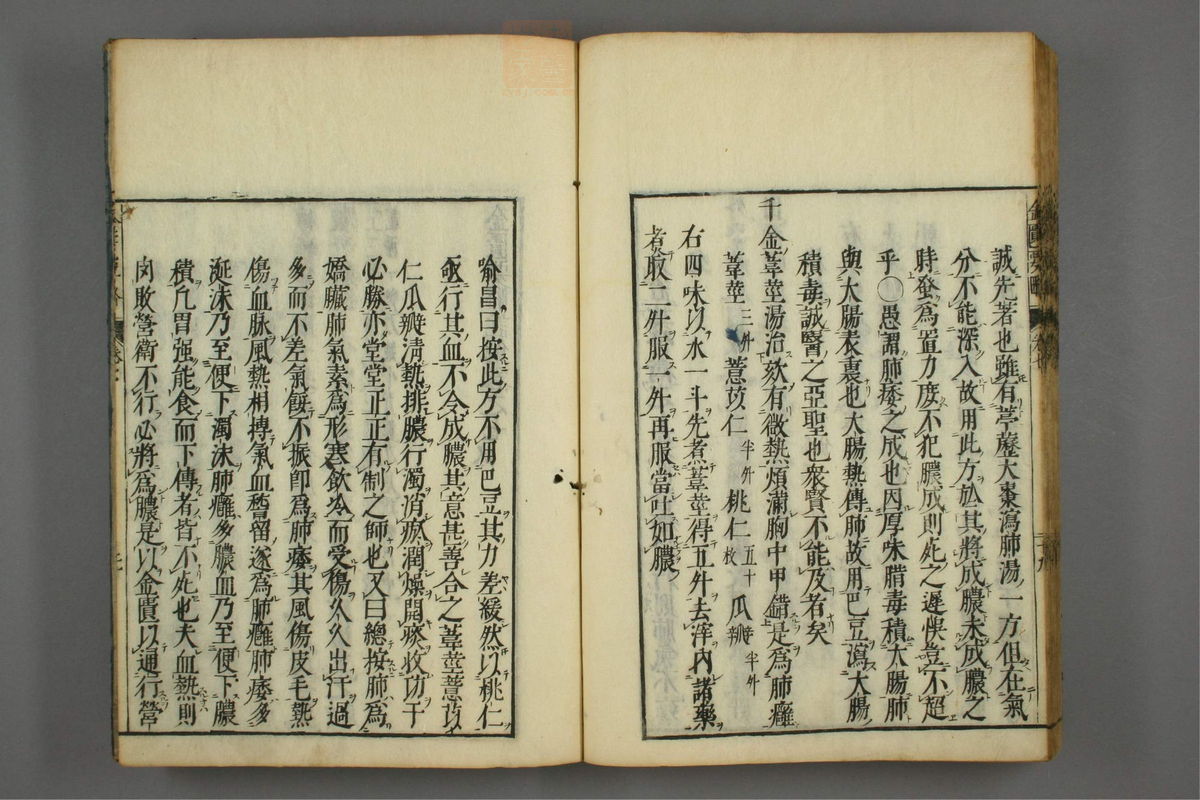 誠先著也雖有葶藶大棗瀉肺湯一方但在氣
分不能深入故用此方於其將成膿未成膿之
時蚤爲置力庶不犯膿成則死之遲悞豈不超
乎○愚謂肺痿之成也因厚味腊毒積大腸肺
與大腸表裏也大腸熱傳肺故用巴豆瀉大腸
積毒誠醫之亞聖也衆賢不能及者矣
千金葦莖湯治欬有微熱煩滿胸中甲錯是爲肺癰
葦莖三升薏苡仁半升桃仁五十枚瓜瓣半升
右四味以水一斗先煮葦莖得五升去滓內諸藥
煮取二升服一升再服當吐如膿
喻昌曰按此方不用巴豆其力差緩然以桃仁
亟行其血不令成膿其意甚善合之葦莖薏苡
仁瓜瓣淸熱排膿行濁消瘀潤燥開痰收功于
必勝亦堂堂正正有制之師也又曰總按肺爲
嬌臟肺氣素爲形寒飮冷而受傷久久出汗過
多而不差氣餒不振卽爲肺痿其風傷皮毛熱
傷血脉風熱相搏氣血稽留遂爲肺癰肺痿多
涎沫乃至便下濁沫肺癰多膿血乃至便下膿
積凢胃强能食而下傳者皆不死也夫血熱則
肉敗營衛不行必將爲膿是以金匱以通行營